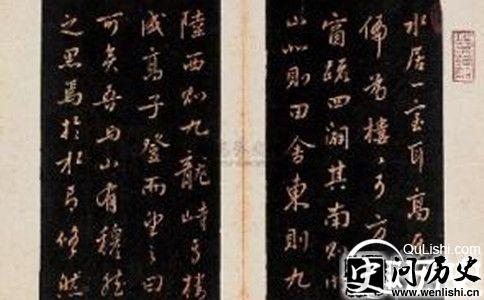 水居一室耳高
偏為樓〻可方
窗疏四闢其南則湖
山北則田舍東則九
陸西則九龍峙焉樓
成高子登而望之曰
可矣吾與山有穆然
之思焉於水有悠然
QuLishi.com
问历史
www.wenlishi.cn